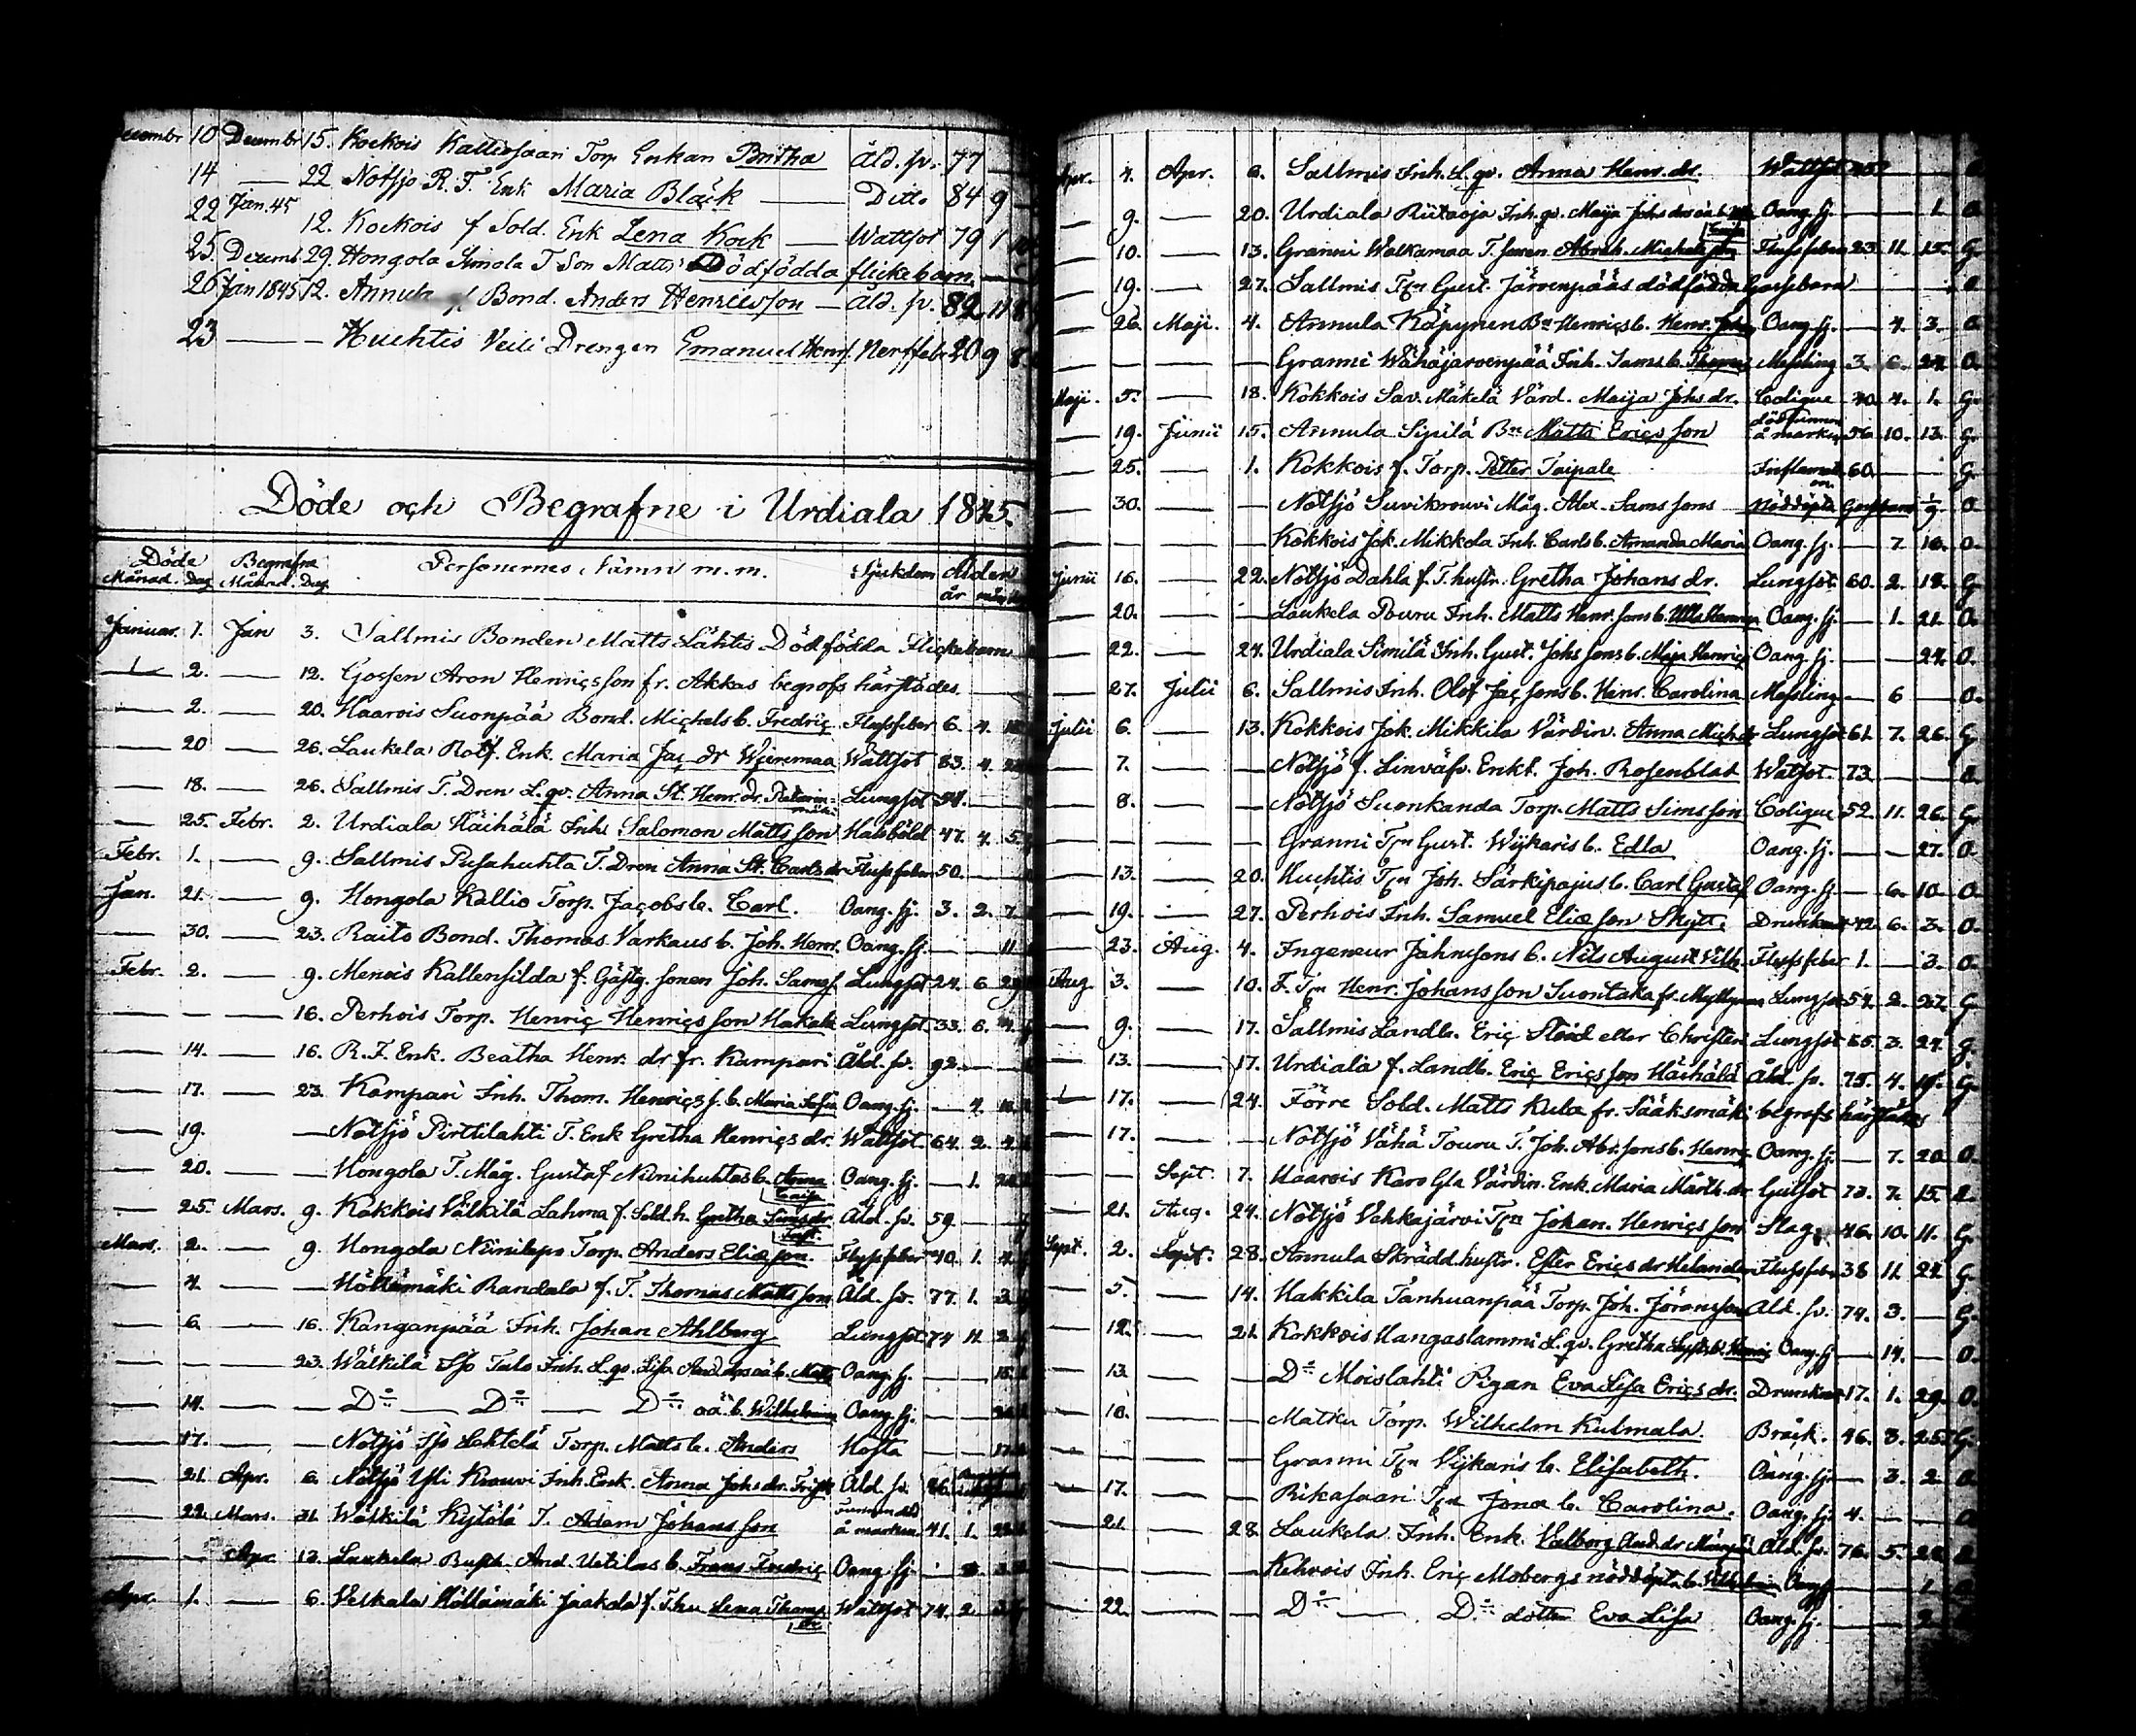 10 Decembr 15. Kockois Kalliosaari Torp Enkan Britha Åld. sv. 77
14 — 22 Notsjö R. T. Enk Maria Black — Ditto 84 9
22 Jan. 45 12. Kockois f Sold. Enk Lena Kock — Wattsot 79 1
25. Decemb 29. Hongola Simola T Son Matts Dödfödda flickebarn.
26 Jan 1845 12. Annula Bond. Anders Henricsson — Åld. sv. 82 11 8
23 — — Huchtis Veili Drengen Emanuel Henr. Nerffeb 20 9 8
Döde och Begrafne i Urdiala 1845.
Döde Begrafna Personernes Namn m. m. Sjukdom Ålder
Månad. Dag Månad. Dag år mån
Januar. 1. Jan 3. Sallmis Bonden Matts Lahtis Dödfödda Flickebarn
2. — 12. Gossen Aron Henricsson fr. Akkas begrofs härstädes.
— 2. — 20. Haarois Suonpää Bond. Michels b. Fredric Flussfeber 6. 4.
— 20 — 26. Laukela Rotf. Enk. Maria Jac dr Wieremaa Wattsot 83. 4.
— 18. — 26. Sallmis T. Dren L. qv. Anna St. Henr. dr. Lungsot 54.
— 25. Febr. 2. Urdiala Häihälä Inh. Salomon Mattsson Halsböld 47. 4. 5
Febr. 1. — 9. Sallmis Pusahuhta T. Dren Anna St. Carls dr Flussfeber 50.
Jan. 21. — 9. Hongola Kallio Torp. Jacobs b. Carl. Oang. sj. 3. 2. 7
— 30. — 23. Raito Bond. Thomas Varkaus b. Joh. Henr. Oang. sj. — 11
Febr. 2. — 9. Menois Kallensilda f. Gästg. sonen Joh. Samss. Lungsot 24. 6
— — — 16. Perhois Torp. Henric Henricsson Hakala Lungsot 33. 6.
— 14. — 16. R. T. Enk. Beatha Henr. dr fr. Kampari Åld. sv. 92.
— 17. — 23. Kampari Inh. Thom. Henricss. b. Maria Sofia Oang. sj. — 4.
— 19. — Notsjö Pirttilahti T. Enk Gretha Henrics dr. Wattsot 64. 2.
— 20. — — Hongola T. Måg. Gustaf Niinihuhtas b. Anna Caisa Oang. sj. — 1.
— 25. Mars. 9. Kokkois Välkilä Lahma f. Sold. h. Gretha Simsdr Åld. sv. 59.
Mars. 2. — 9. Hongola Niinilepo Torp. Anders Eliæson. Flussfeber 40. 1.
— 4. — — Höllämäki Randala f. T. Thomas Mattsson Åld. sv. 77. 1.
— 6. — 16. Kanganpää Inh. Johan Ahlberg Lungsot 74 11
— — — 23. Wälkilä Sjö Talo Inh. L. qv. Lisa And. drs oä b. Matts Oang. sj. — 15
— 14. — — Do — Do — Do oä. b. Wilhelmina Oang. sj.
— 17. — — Notsjö Sjö Lehtelä Torp. Matts b. Anders Hosta — 17
— 21. Apr. 6. Notsjö Yli Krouvi Inh. Enk. Anna Johs dr. Frisk Åld. sv. 86
— 22. Mars. 31. Wälkilä Kytölä T. Adam Johansson Funnen död å marken 41. 1.
— — Apr. 13. Laukela And. Uotilas b. Frans Fredric Oang. sj.
Apr. 1. — 6. Veskala Höllämäki Jaakola f. T. hu Lena Thoms dr Wattsot 74. 2
Apr. 4. Apr. 6. Sallmis Inh. L. qv. Anna Henr. dr. Wattsot
— 9. — 20. Urdiala Riitaoja Inh. qv. Maija Johs drs oä b. Oang. sj. — 1.
— 10. — 13. Granni Walkamaa T. sonen Abrah. Michelsson Flussfeber 23. 11. 15. G.
— 19. — 27. Sallmis Tpn Gust. Järvenpääs dödfödda Gossebarn
— 26. Maji. 4. Annula Käpynen Bn Henrics b. Henr. Joh. Oang. sj. — 4. 3. O.
— — — — Granni Wähäjärvenpää Inh. Sams b. Thomas Messling 3. 6. 24. O.
Maji. 5. — 18. Kokkois Sav. Mäkelä Värd. Maija Johs dr. Colique 40. 4. 1. G.
— 19. Junii 15. Annula Sipilä Bn Matts Ericsson död funnen å marken 56 10. 13. G.
— 25. — 1. Kokkois f. Torp. Petter Taipale Inflamation. 60. — G.
— 30. — — Notsjö Suvikrouvi Måg. Alex. Samssons Nöddöpta Gossbarn O.
— — — — Kokkois Jok. Mikkola Inh. Carls b. Amanda Maria Oang. sj. — 7. 16. O.
Junii 16. — 22. Notsjö Dahla f. T. hustr. Gretha Johans dr. Lungsot 60. 2. 18. G.
— 20. — — Laukela Pouru Inh. Matts Henr. sons b. Ulla Henrica Oang. sj. — 1. 21. O.
— 22. — 24. Urdiala Similä Inh. Gust. Johs sons b. Maja Henrica Oang. sj. — — 24. O.
— 27. Julii 6. Sallmis Inh. Olof Jac. sons b. Henr. Carolina Messling — 6 — O.
Julii 6. — 13. Kokkois Jok. Mikkila Värdin. Anna Mich. dr Lungsot 61. 7. 26. G.
— 7. — — Notsjö f. Linväfv. Enkl. Joh. Rosenblad Watsot. 73.
— 8. — — Notsjö Suonkanda Torp. Matts Simsson Colique 52. 11. 26. G.
— — — — Granni Tpn Gust. Wijkaris b. Edla Oang. sj. — — 27. O.
— 13. — 20. Huchtis Tpn Joh. Särkipajus b. Carl Gustaf Oang. sj. — 6. 10. O.
— 19. — 27. Perhois Inh. Samuel Eliæson Skytt. Drunknat 42. 6. 3. O.
— 23. Aug. 4. Ingeneur Johnssons b. Nils August Vilh. Flussfeber 1. — 3. O.
Aug. 3. — 10. F. Tpn Henr. Johansson Suontaka fr. Lungsot 54. 2. 27. G.
— 9. — 17. Sallmis Landb. Eric Stöd eller Christeri Lungsot 65. 3. 24. G.
— 13. — 17. Urdiala f. Landb. Eric Ericsson Häihälä Åld. sv. 75. 4. G.
17. — 24. Förre Sold. Matts Kula fr. Sääksmäki begrofs härstädes
— 17. — — Notsjö Vähä Touru T. Joh. Abr. sons b. Henric Oang. sj. — 7. 20. O.
— — Sept. 7. Haarois Karo Gla Värdin. Enk. Maria Märth. dr Gulsot 73. 7. 15.
— 21. Aug. 24. Notsjö Vehkajärvi Tpn Johan. Henricsson Slag. 46. 10. 11. G.
Sept. 2. Sept. 28. Annula Skrädd. hustr. Ester Erics dr Helander Flussfeber 38 11. 24. G.
— 5. — 14. Hakkila Tanhuanpää Torp. Joh. Jöransson Åld. sv. 74. 3. — G.
— 12. — 21. Kokkois Hangaslammi L. qv. Gretha Oang. sj. — 14. — O.
— 13. — — Do Moislahti Pigan Eva Lisa Erics dr. Drunknat 17. 1. 29. O.
— 16. — — Matku Torp. Wilhelm Kulmala. Bråck. 46. 3. 25. G.
— — — — Granni Tpn Vijkaris b. Elisabeth. Oang. sj. — 3. 2
— 17. — — Rikasaari Tpn Jona b. Carolina. Oang. sj. 4.
— 21. — 28. Laukela Inh. Enk. Valborg And. dr Åld. sv. 76. 5.
— — — — Kehvois Inh. Eric Mobergs nöddöpta b. Vilhelmina Oang. sj. — 1
— 22. — — Do — Do dotter Eva Lisa Oang. sj. — 2